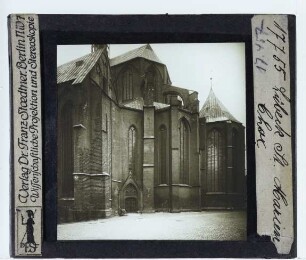 Verlag Dr. Franz Stoedtner, Berlin NW7
Wissenschaftliche Projektion und Stereoskopie
17755 Lübeck St. Marien
Chor